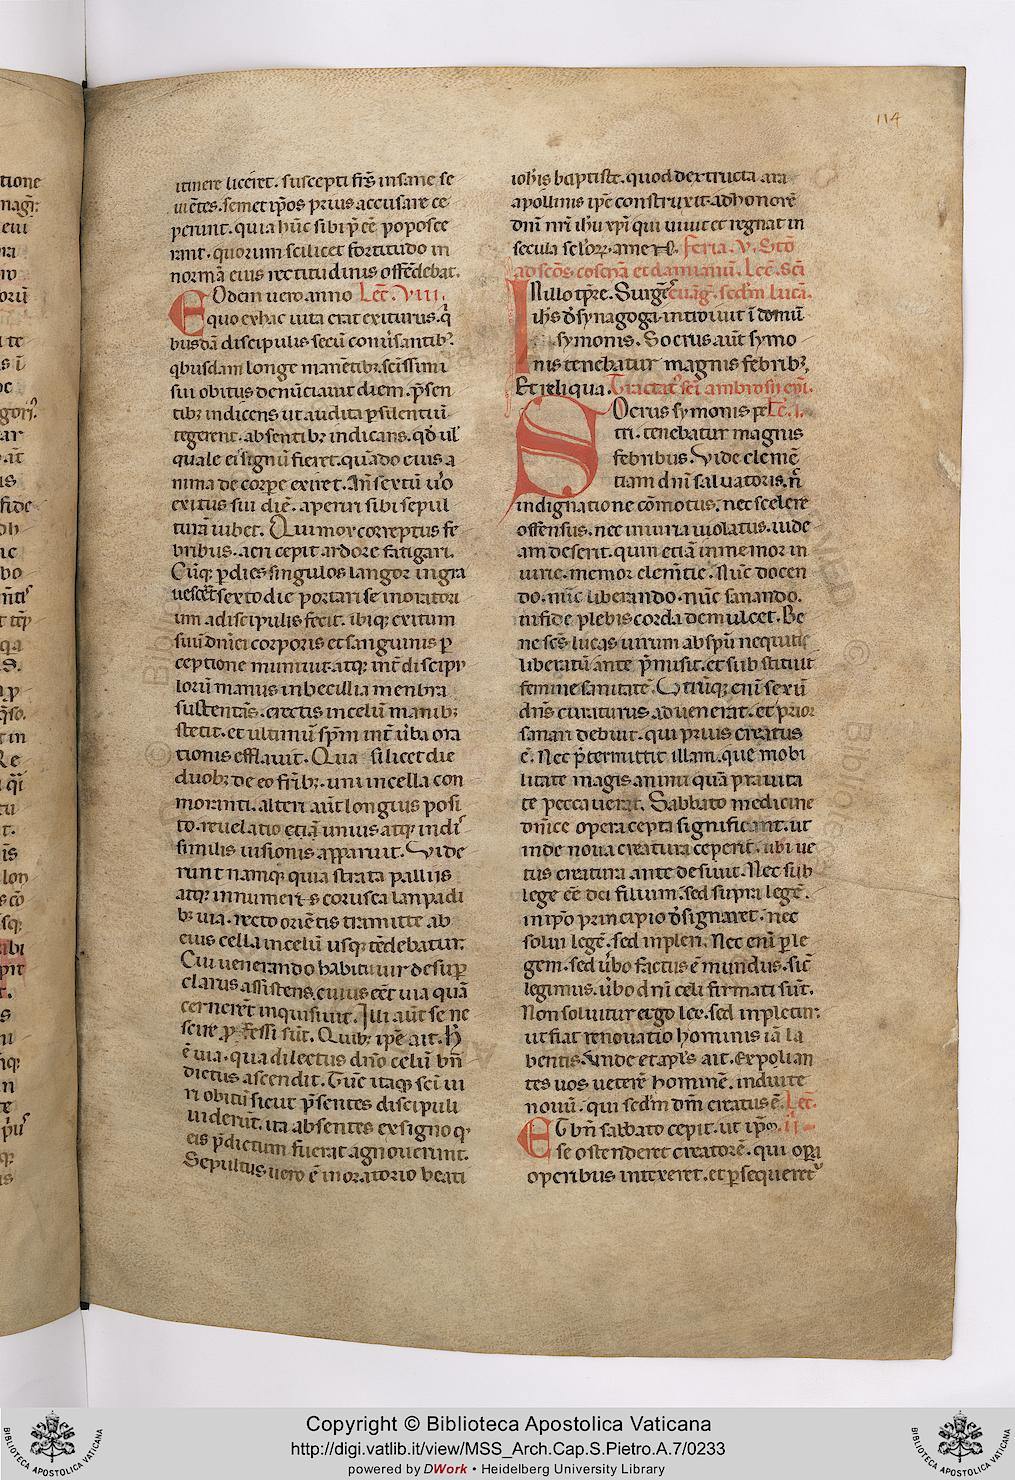 114
itinere liceret. suscepti fr̄s insane se
uiētes. semet ip̄os prius accusare ce
perunt. quia hūc sibi p̄ eē poposce
rant. quorum scilicet fortitudo in
normā eius rectitudinis offēdebat.
EOdem uero anno Lec̄. VIII.
quo ex hac uita erat exiturus. q̄
busdā discipulis secū conūsantib᷒.
q̄busdam longe manētibꝫ. sc̄issimi
sui obitus denūciauit diem. p̄sen
tibꝫ indicens ut audita ꝑ silentiū
tegerent. absentibꝫ indicans. qđ uł
quale ei signū fieret. quādo eius a
nima de corꝑe exiret. An̄ sextū ūo
exitus sui diē. aperiri sibi sepul
turā iubet. Qui mox correptus fe
bribus. acri cepit ardore fatigari.
Cūqꝫ ꝑ dies singulos langor ingra
uesc̄et sexto die portari se in oratori
um a discipulis fecit. ibiqꝫ exitum
suū dn̄ici corporis et sanguinis ꝑ
ceptione muniuit. atqꝫ int̄ discipu
lorū manus inbecillia menbra
sustentās. erectis in celū manibꝫ
stetit. et ultimū sp̄m int̄ ūba ora
tionis efflauit. Qua silicet die
duobꝫ de eo fr̄ibꝫ. uni in cella con
moranti. alteri aūt longius posi
to. reuelatio etiā unius atqꝫ indi
similis uisionis apparuit. Vide
runt namqꝫ quia strata palliis
atqꝫ innumeris corusca lanpadi
bꝫ uia. recto oriētis tramitte ab
eius cella in celū usqꝫ tēdebatur.
Cui uenerando habitu uir desuꝑ
clarus assistens. cuius eēt uia quā
cerneret inquisiuit. Illi aūt se ne
scire ꝓfessi sūt. Quibꝫ ip̄e ait. H̄
ē uia. qua dilectus dn̄o celū bn̄
dictus ascendit. Tūc itaqꝫ sc̄i ui
ri obitū sicut p̄sentes discipuli
uiderūt. ita absentes ex signo q̄
eis p̄dictum fuerat agnouerunt.
Sepultus uero ē in oratorio beati
ioh̄is baptiste. quod dextructa ara
apollinis ip̄e construxit. ad honorē
dn̄i nr̄i ih̄u xp̄i qui uiuit et regnat in
secula sc̄loꝝ. amen. Feria. V. Stō
ad sc̄os cosmā et damianū. Lec̄. sc̄i
INillo tp̄re. Surgēs euāḡ. scd̄m lucā.
ih̄s đ synagoga. introiuit ī domū
symonis. Socrus aūt symo
nis tenebatur magnis febribꝫ,
Et reliqua. Tractat᷒ sc̄i ambrosii ep̄i.
SOcrus symonis pe Lc̄. I.
tri. tenebatur magnis
febribus. Vide clemē
tiam dn̄i saluatoris. n̄
indignatione cōmotus. nec scelere
offensus. nec iniuria uiolatus. iude
am deserit. quin etiā inmemor in
iurie. memor clemētie. Nūc docen
do. nūc liberando. nūc sanando.
infide plebis corda demulcet. Be
ne sc̄s lucas uirum ab sp̄u nequitie
liberatū ante p̄misit. et substituit
femine sanitatē. Utrūqꝫ eni sexū
dn̄s curaturus aduenerat. et prior
sanari debuit. qui prius creatus
ē. Nec p̄termittit illam. que mobi
litate magis animi quā prauita
te peccauerat. Sabbato medicine
dn̄ice opera cepta significant. ut
inde noua creatura ceperit. ubi ue
tus creatura ante desiuit. Nec sub
lege eē dei filium. sed supra legē.
in ip̄o principio đsignaret. nec
solui legē. sed inpleri. Nec eni ꝑ le
gem. sed ūbo factus ē mundus. sic̄
legimus. ūbo dn̄i celi firmati sūt.
Non soluitur ergo lex. sed inpletur.
ut fiat renouatio hominis iā la
bentis. Vnde et ap̄ls ait. Expolian
tes uos ueterē hominē. induite
nouū. qui scd̄m dm̄ creatus ē. Lec̄.
ET bn̄ sabbato cepit. ut ip̄m II
se ostenderet creatorē. qui opa
operibus intexeret. et ꝑsequeret᷒
Copyright © Biblioteca Apostolica Vaticana
http://digi.vatlib.it/view/MSS_Arch.Cap.S.Pietro.A.7/0233
powered by DWork • Heidelberg University Library
BIBLIOTECA APOSTOLICA VATICANA
BIBLIOTECA APOSTOLICA VATICANA